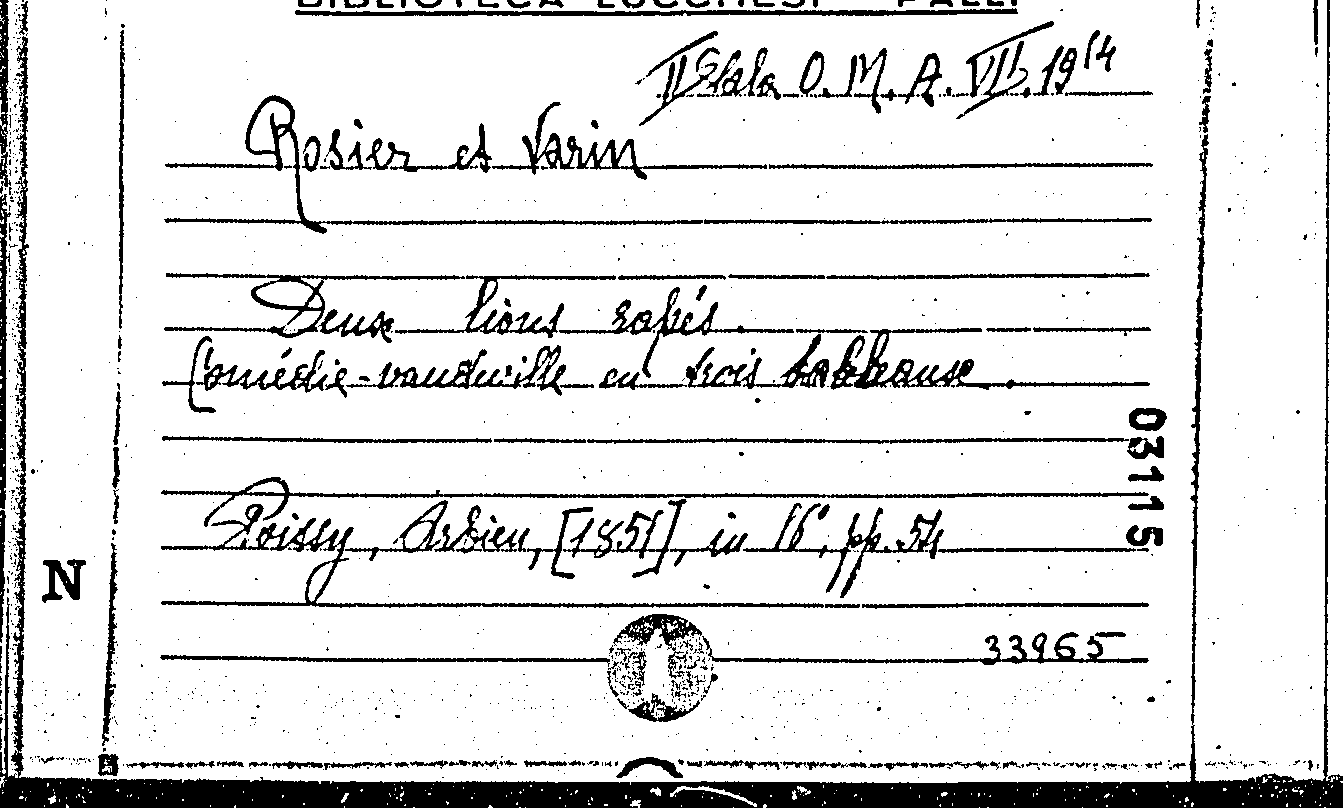 BIBLIOTECA LUCCHESI - PALLI
II Sala O. M. A. VII. 19 (4
Rosier et Varin
Deux lions rapés.
Comédie-vaudeville en trois tableaux.
Poissy, Arbieu, [1851], in 16°, pp. 54
03115
N
33965